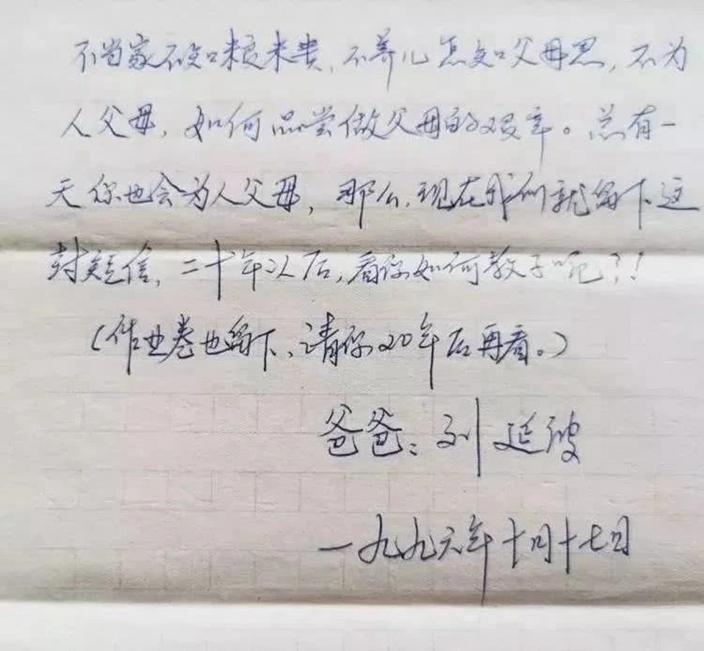 不当家不知粮米贵,不养儿怎知父母恩,不为
人父母,如何品尝做父母的艰辛。总有一
天你也会为人父母,那么,现在我们就留下这
封短信,二十年以后,看你如何教子呢?!
(作业卷也留下、请你20年后再看。)
爸爸:刘延波
一九九六年十月十七日